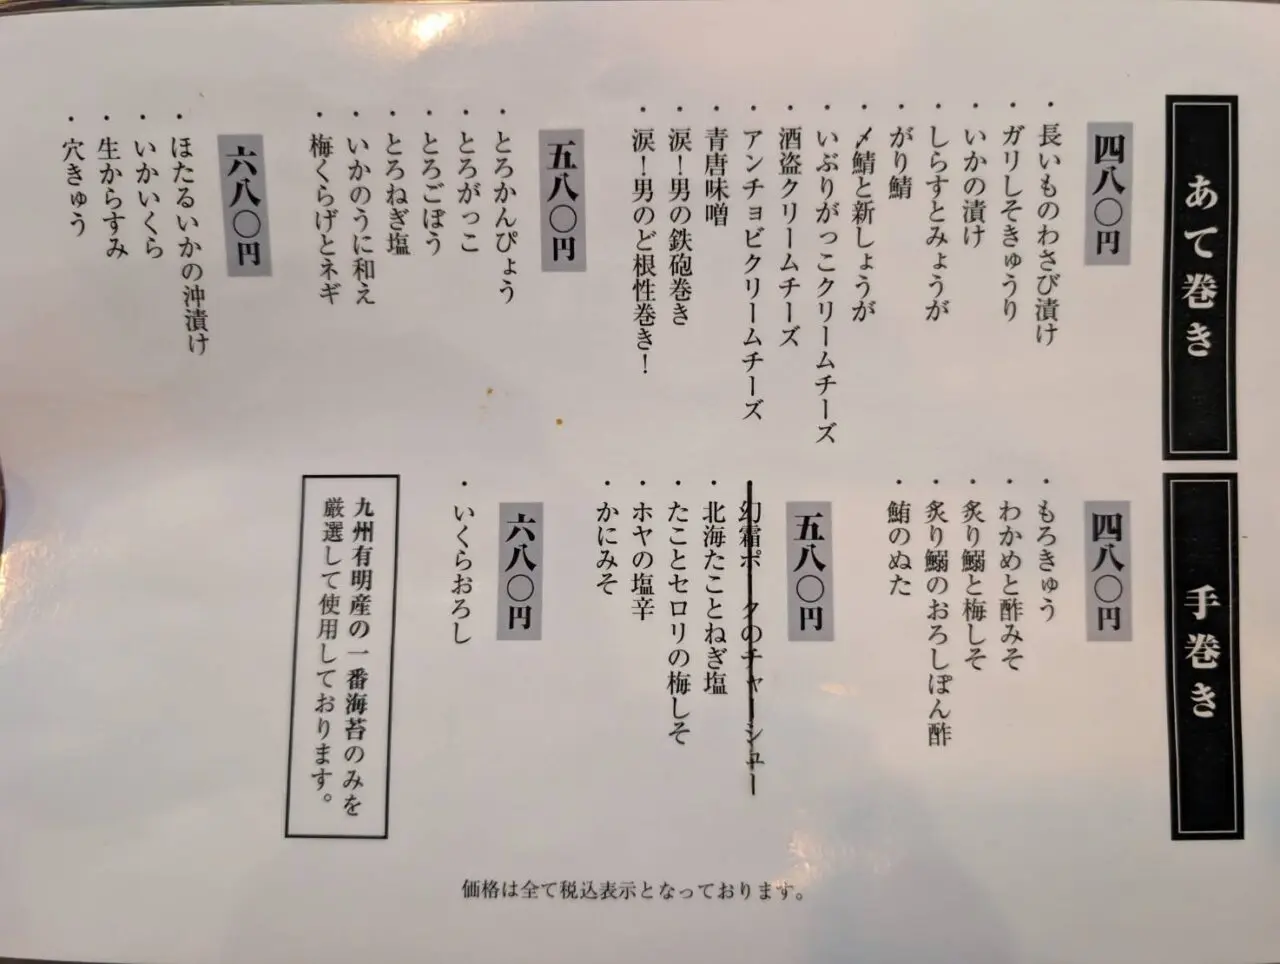 あて巻き
四八〇円
・長いものわさび漬け
・ガリしそきゅうり
・いかの漬け
・しらすとみょうが
・がり鯖
・〆鯖と新しょうが
・いぶりがっこクリームチーズ
・酒盗クリームチーズ
・アンチョビクリームチーズ
・青唐味噌
・涙！男の鉄砲巻き
・涙！男のど根性巻き！
五八〇円
・とろかんぴょう
・とろがっこ
・とろごぼう
・とろねぎ塩
・いかのうに和え
・梅くらげとネギ
六八〇円
・ほたるいかの沖漬け
・いかいくら
・生からすみ
・穴きゅう
手巻き
四八〇円
・もろきゅう
・わかめと酢みそ
・炙り鰯と梅しそ
・炙り鰯のおろしぽん酢
・鮪のぬた
五八〇円
・幻霜ポークのチャーシュー
・北海たことねぎ塩
・たことセロリの梅しそ
・ホヤの塩辛
・かにみそ
六八〇円
・いくらおろし
九州有明産の一番海苔のみを
厳選して使用しております。
価格は全て税込表示となっております。